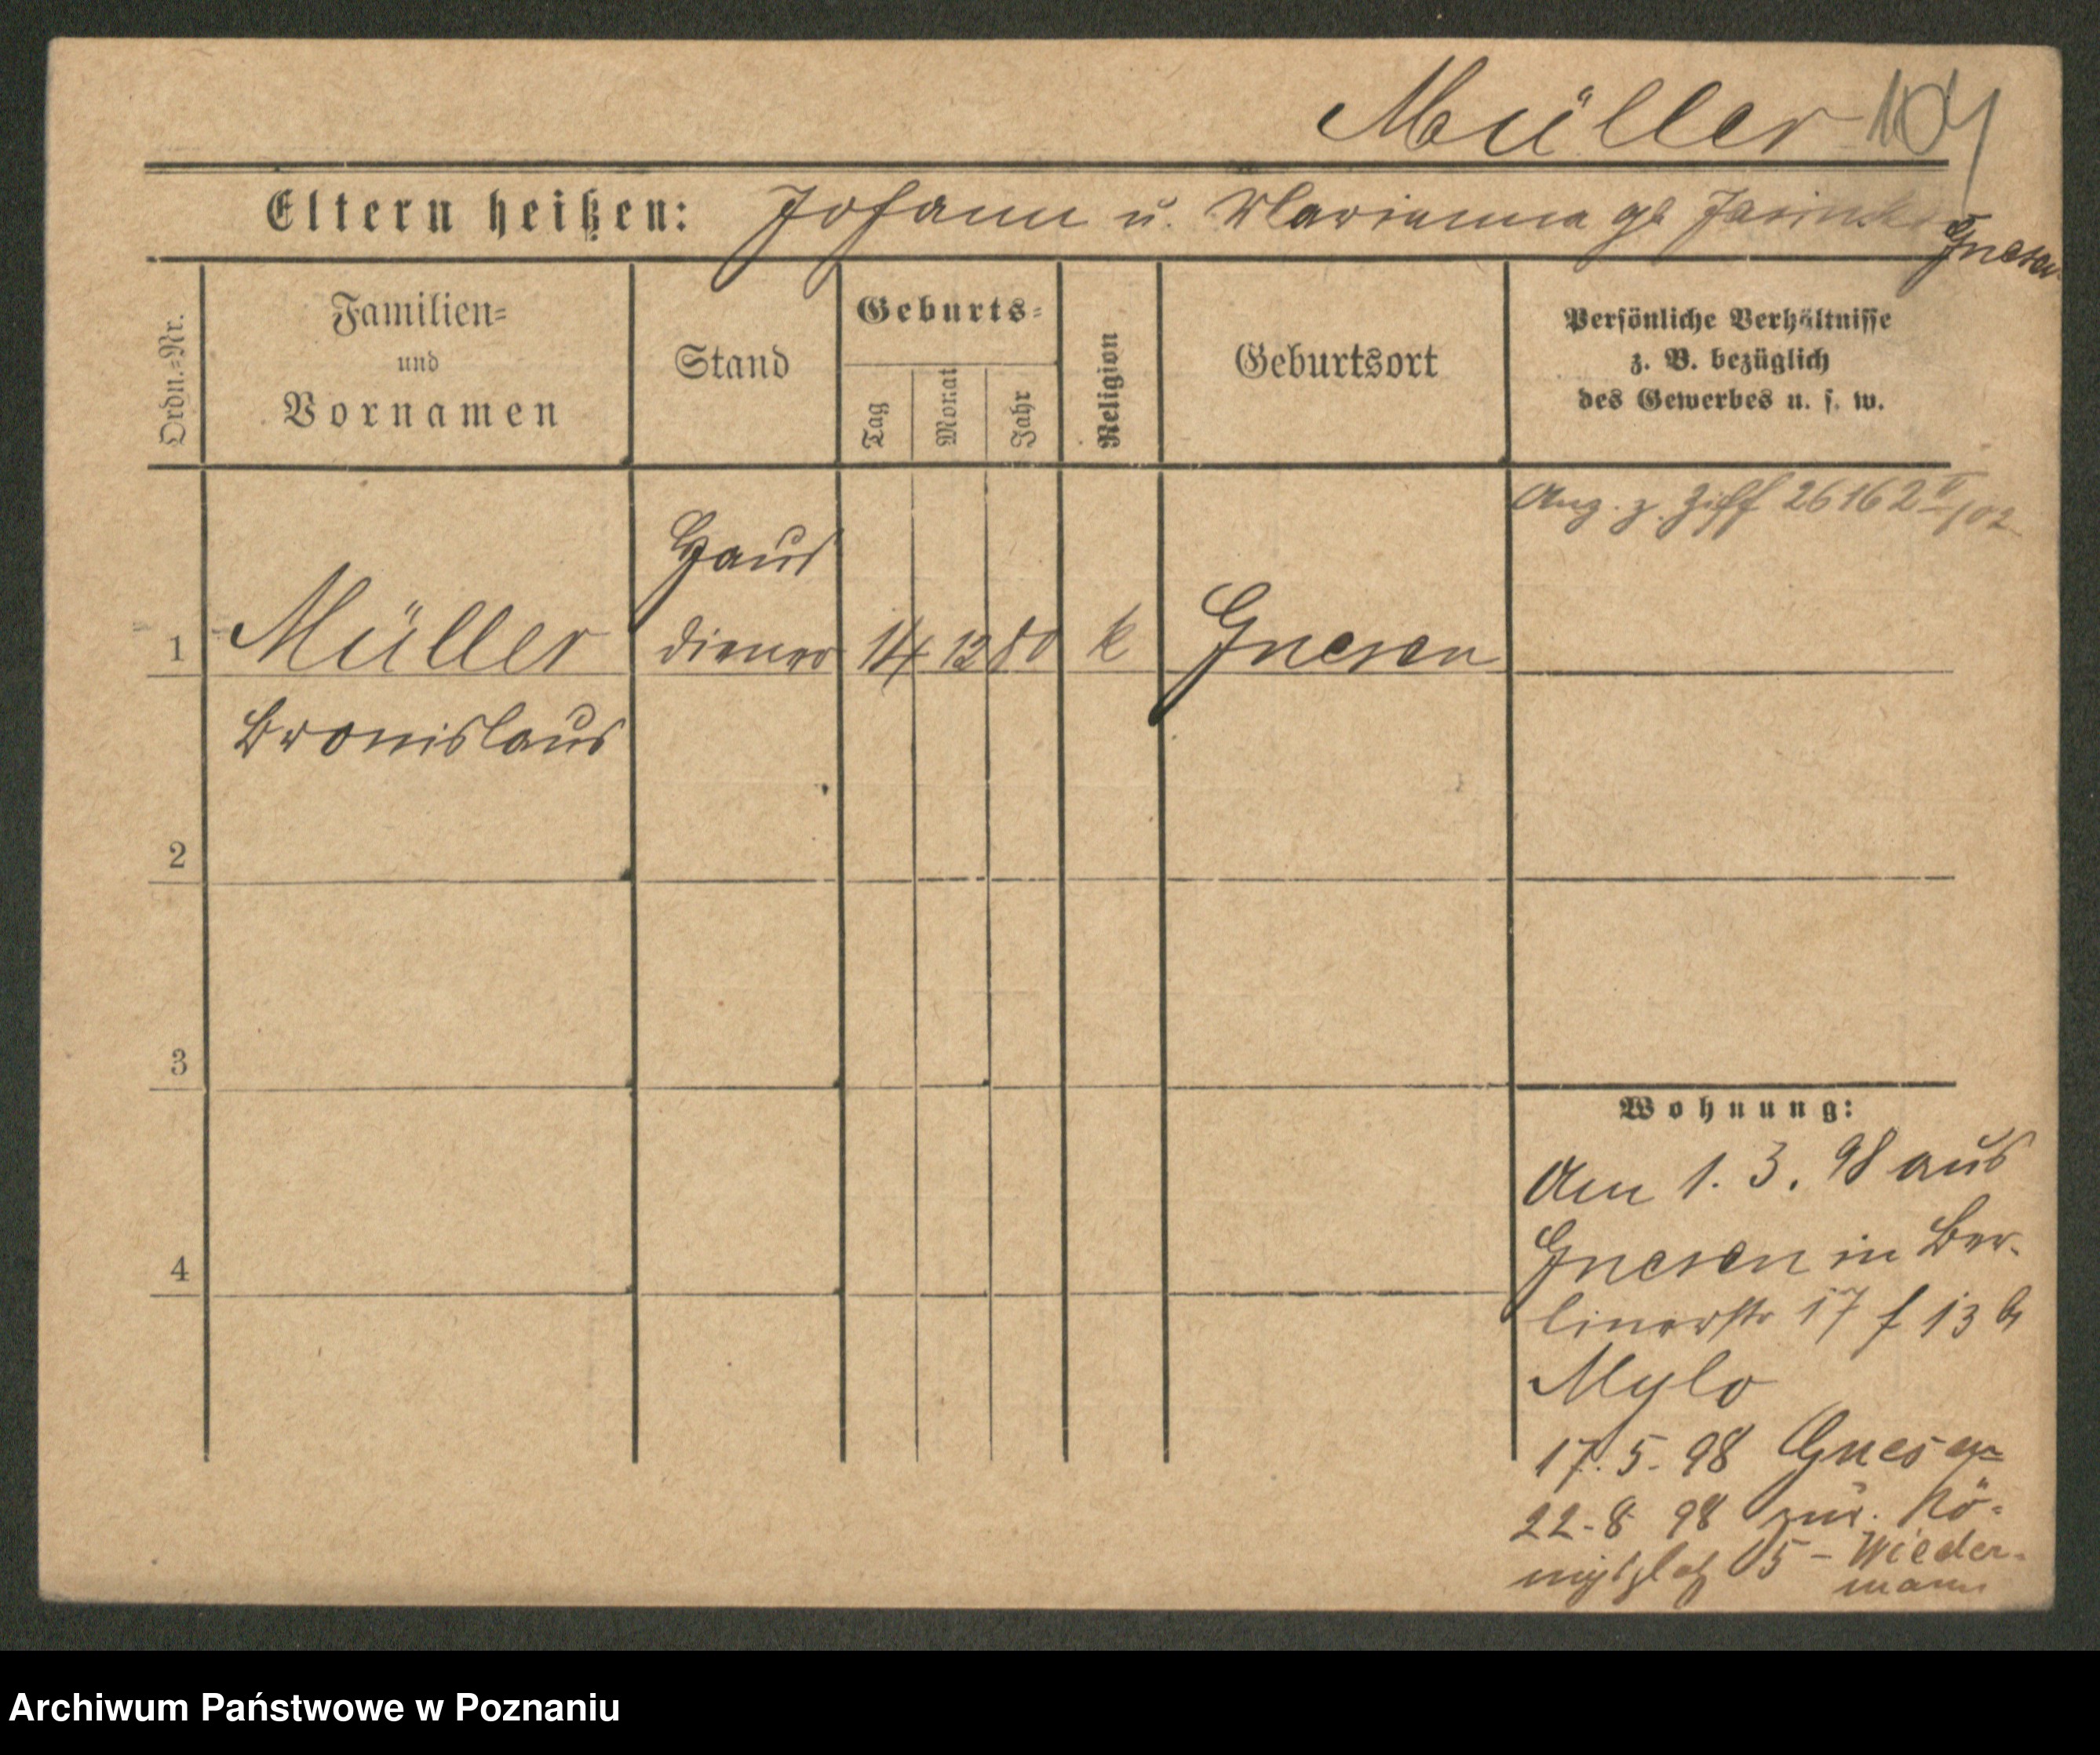 Müller 104
Eltern heißen: Johann u. Marianna gb Gnesen
Ordn.=Nr.
Familien=
und
Vornamen
Stand
Geburts=
Tag
Monat
Jahr
Religion
Geburtsort
Persönliche Verhältnisse
z. B. bezüglich
des Gewerbes u. s. w.
Ang. z. Ziff 26162 II/02
1 Müller
Bronislaus
Haus
diener
14 12 80 k Gnesen
2
3
4
Wohnung:
Am 1. 3. 98 aus
Gnesen in Ber-
linerstr 17 f 13 b
Mylo
17. 5. 98 Gnesen
22-8 98 zur. Kö-
nigsplatz 5 - Wieder-
mann
Archiwum Państwowe w Poznaniu